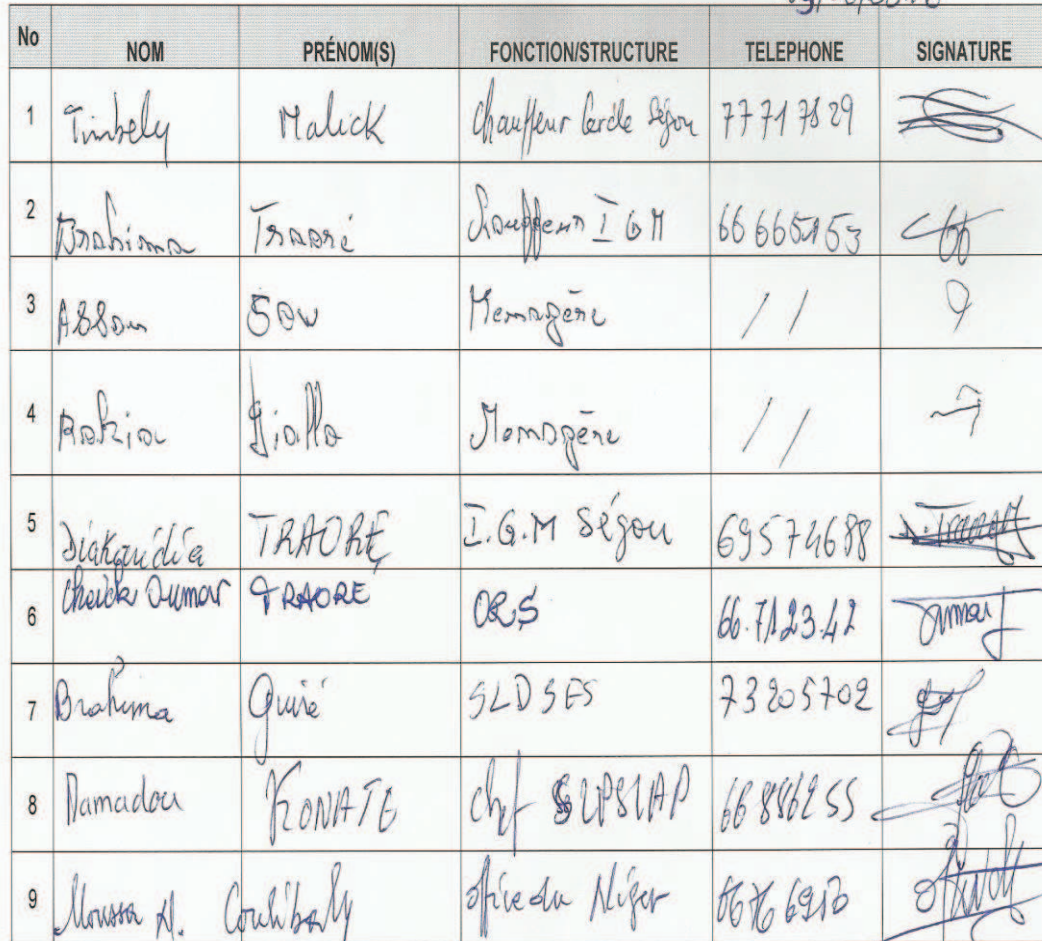 No NOM PRÉNOM(S) FONCTION/STRUCTURE TELEPHONE SIGNATURE
1 Timbely Malick Chauffeur Cercle Ségou 77717829
2 Brahima Traoré Chauffeur IGM 66665153
3 Assan Sow Menagère //
4 Rokia Diallo Menagère //
5 Diakaridia TRAORE I.G.M Ségou 69574688 D.Traoré
6 Cheick Oumar TRAORE ORS 66.71.23.42 Oumar
7 Brahima Guiré SLDSES 73205702
8 Mamadou KONATE Chef 66886255
9 Moussa M. Coulibaly Office du Niger